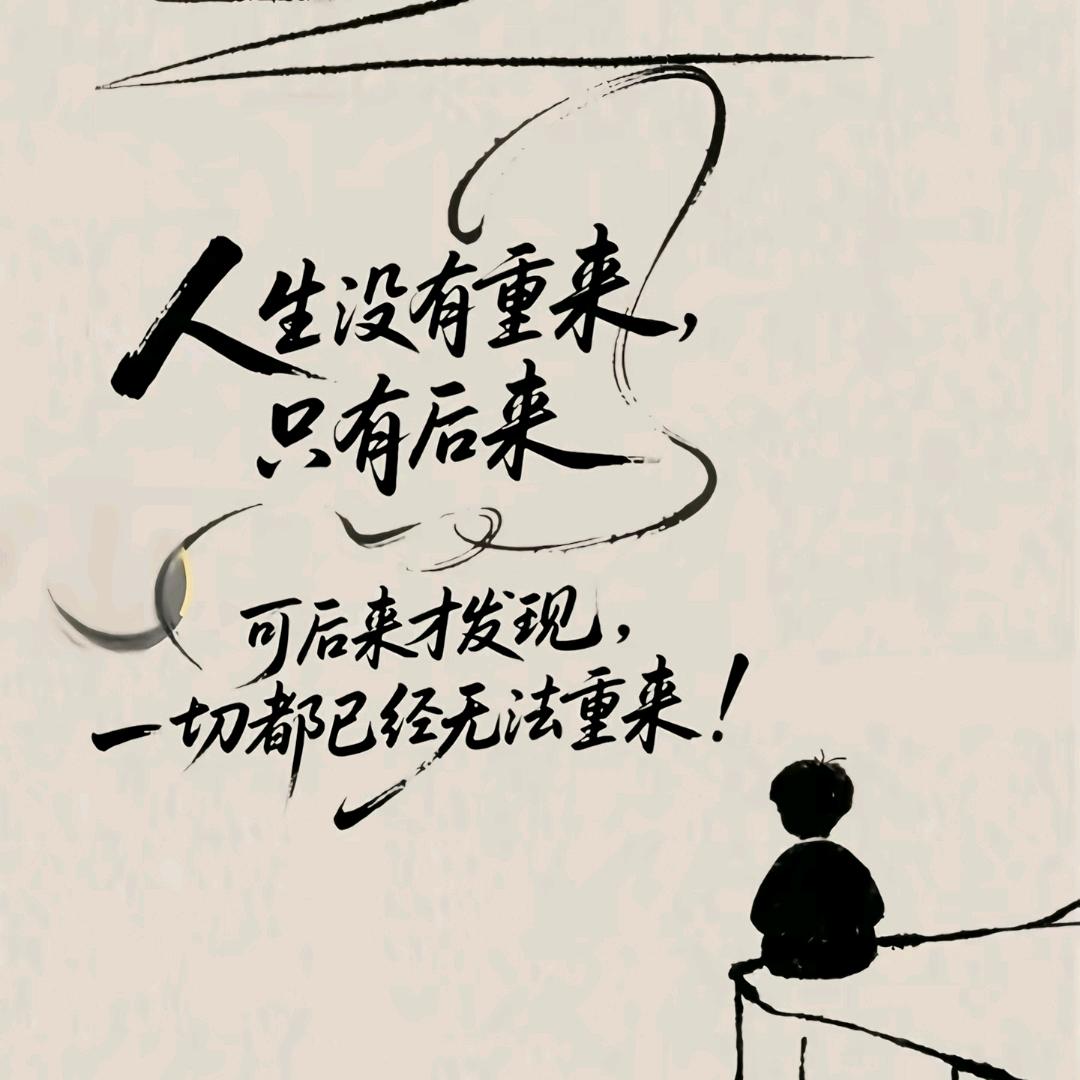 人生没有重来,
只有后来
可后来才发现,
一切都已经无法重来!